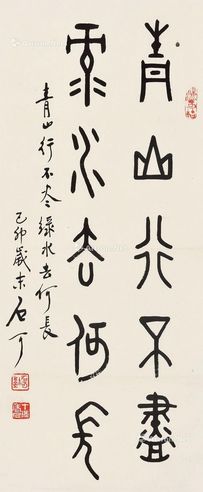 青山行不盡
綠水去何長
青山行不尽 綠水去何長
己卯歲末 石可